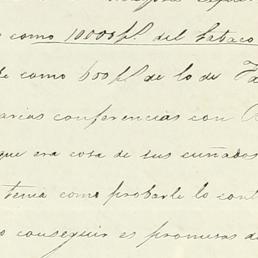 como 10000 fl. del tabaco
de como 600 fl de lo de
varias conferencias con
que era cosa de sus cuñados
tenia como probarle lo cont
conseguir es promesas de